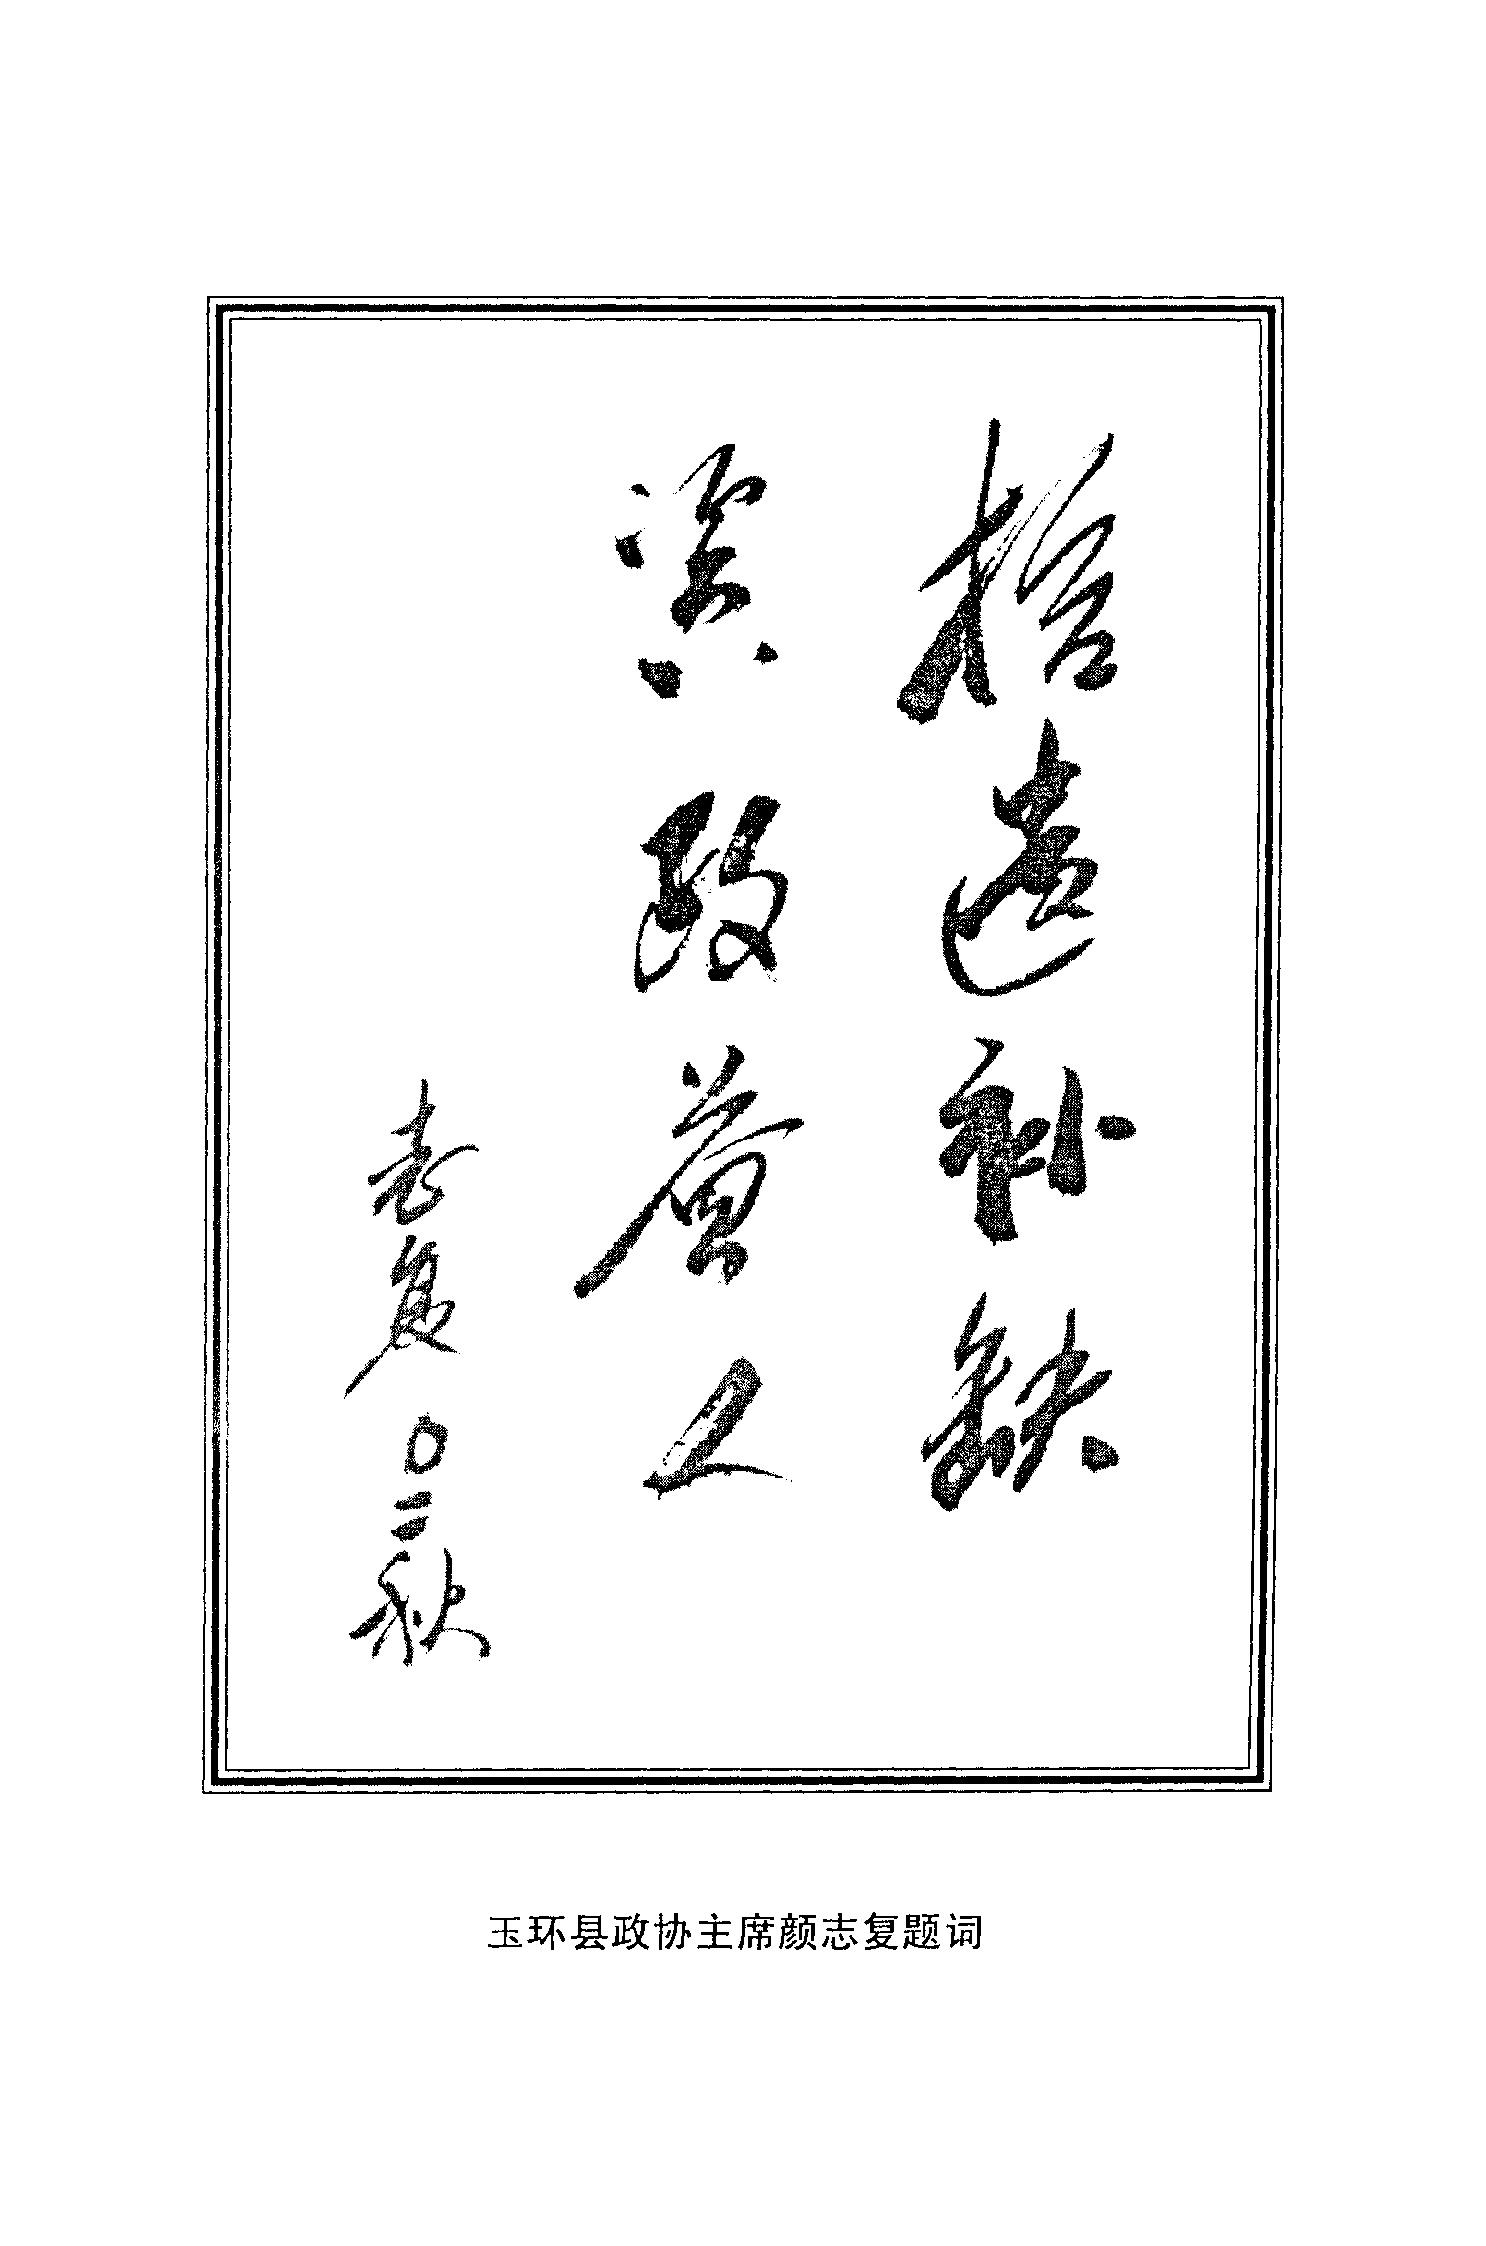 拾遗补缺
资政育人
志复〇二秋
玉环县政协主席颜志复题词